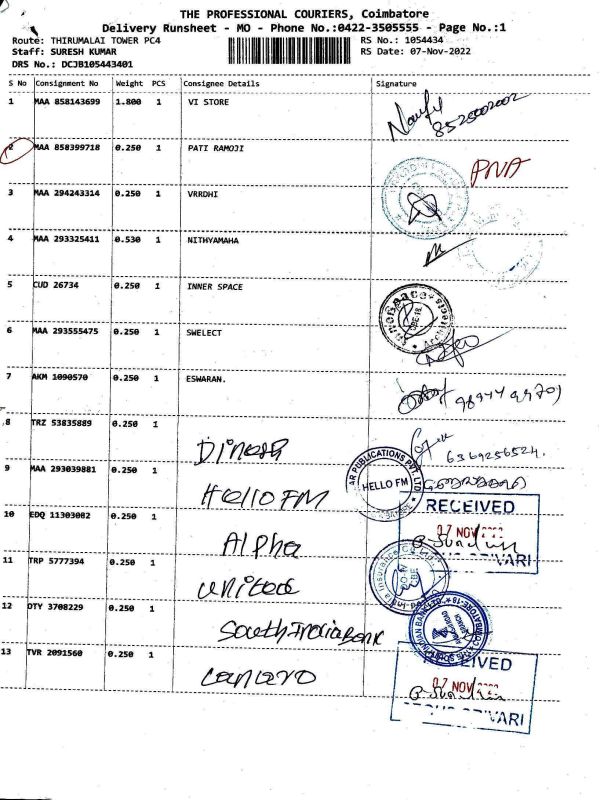 THE PROFESSIONAL COURIERS, Coimbatore
Delivery Runsheet - MO - Phone No.:0422-3505555 - Page No.:1
Route: THIRUMALAI TOWER PC4 RS No.: 1054434
Staff: SURESH KUMAR RS Date: 07-Nov-2022
DRS No.: DCJB105443401
S No Consignment No Weight PCS Consignee Details Signature
1 MAA 858143699 1.800 1 VI STORE
8520002002
2 MAA 858399718 0.250 1 PATI RAMOJI
PNA
3 MAA 294243314 0.250 1 VRRDHI
4 MAA 293325411 0.530 1 NITHYAMAHA
5 CUD 26734 0.250 1 INNER SPACE
6 MAA 293555475 0.250 1 SWELECT
7 AKM 1090570 0.250 1 ESWARAN.
8 TRZ 53835889 0.250 1 Dinesh
6369256524.
9 MAA 293039881 0.250 1 Hello FM
AR PUBLICATIONS PVT. LTD.
HELLO FM
RECEIVED
07 NOV
10 EDQ 11303082 0.250 1 Alpha
11 TRP 5777394 0.250 1 United
12 OTY 3708229 0.250 1 South India Bank
13 TVR 2091560 0.250 1
07 NOV